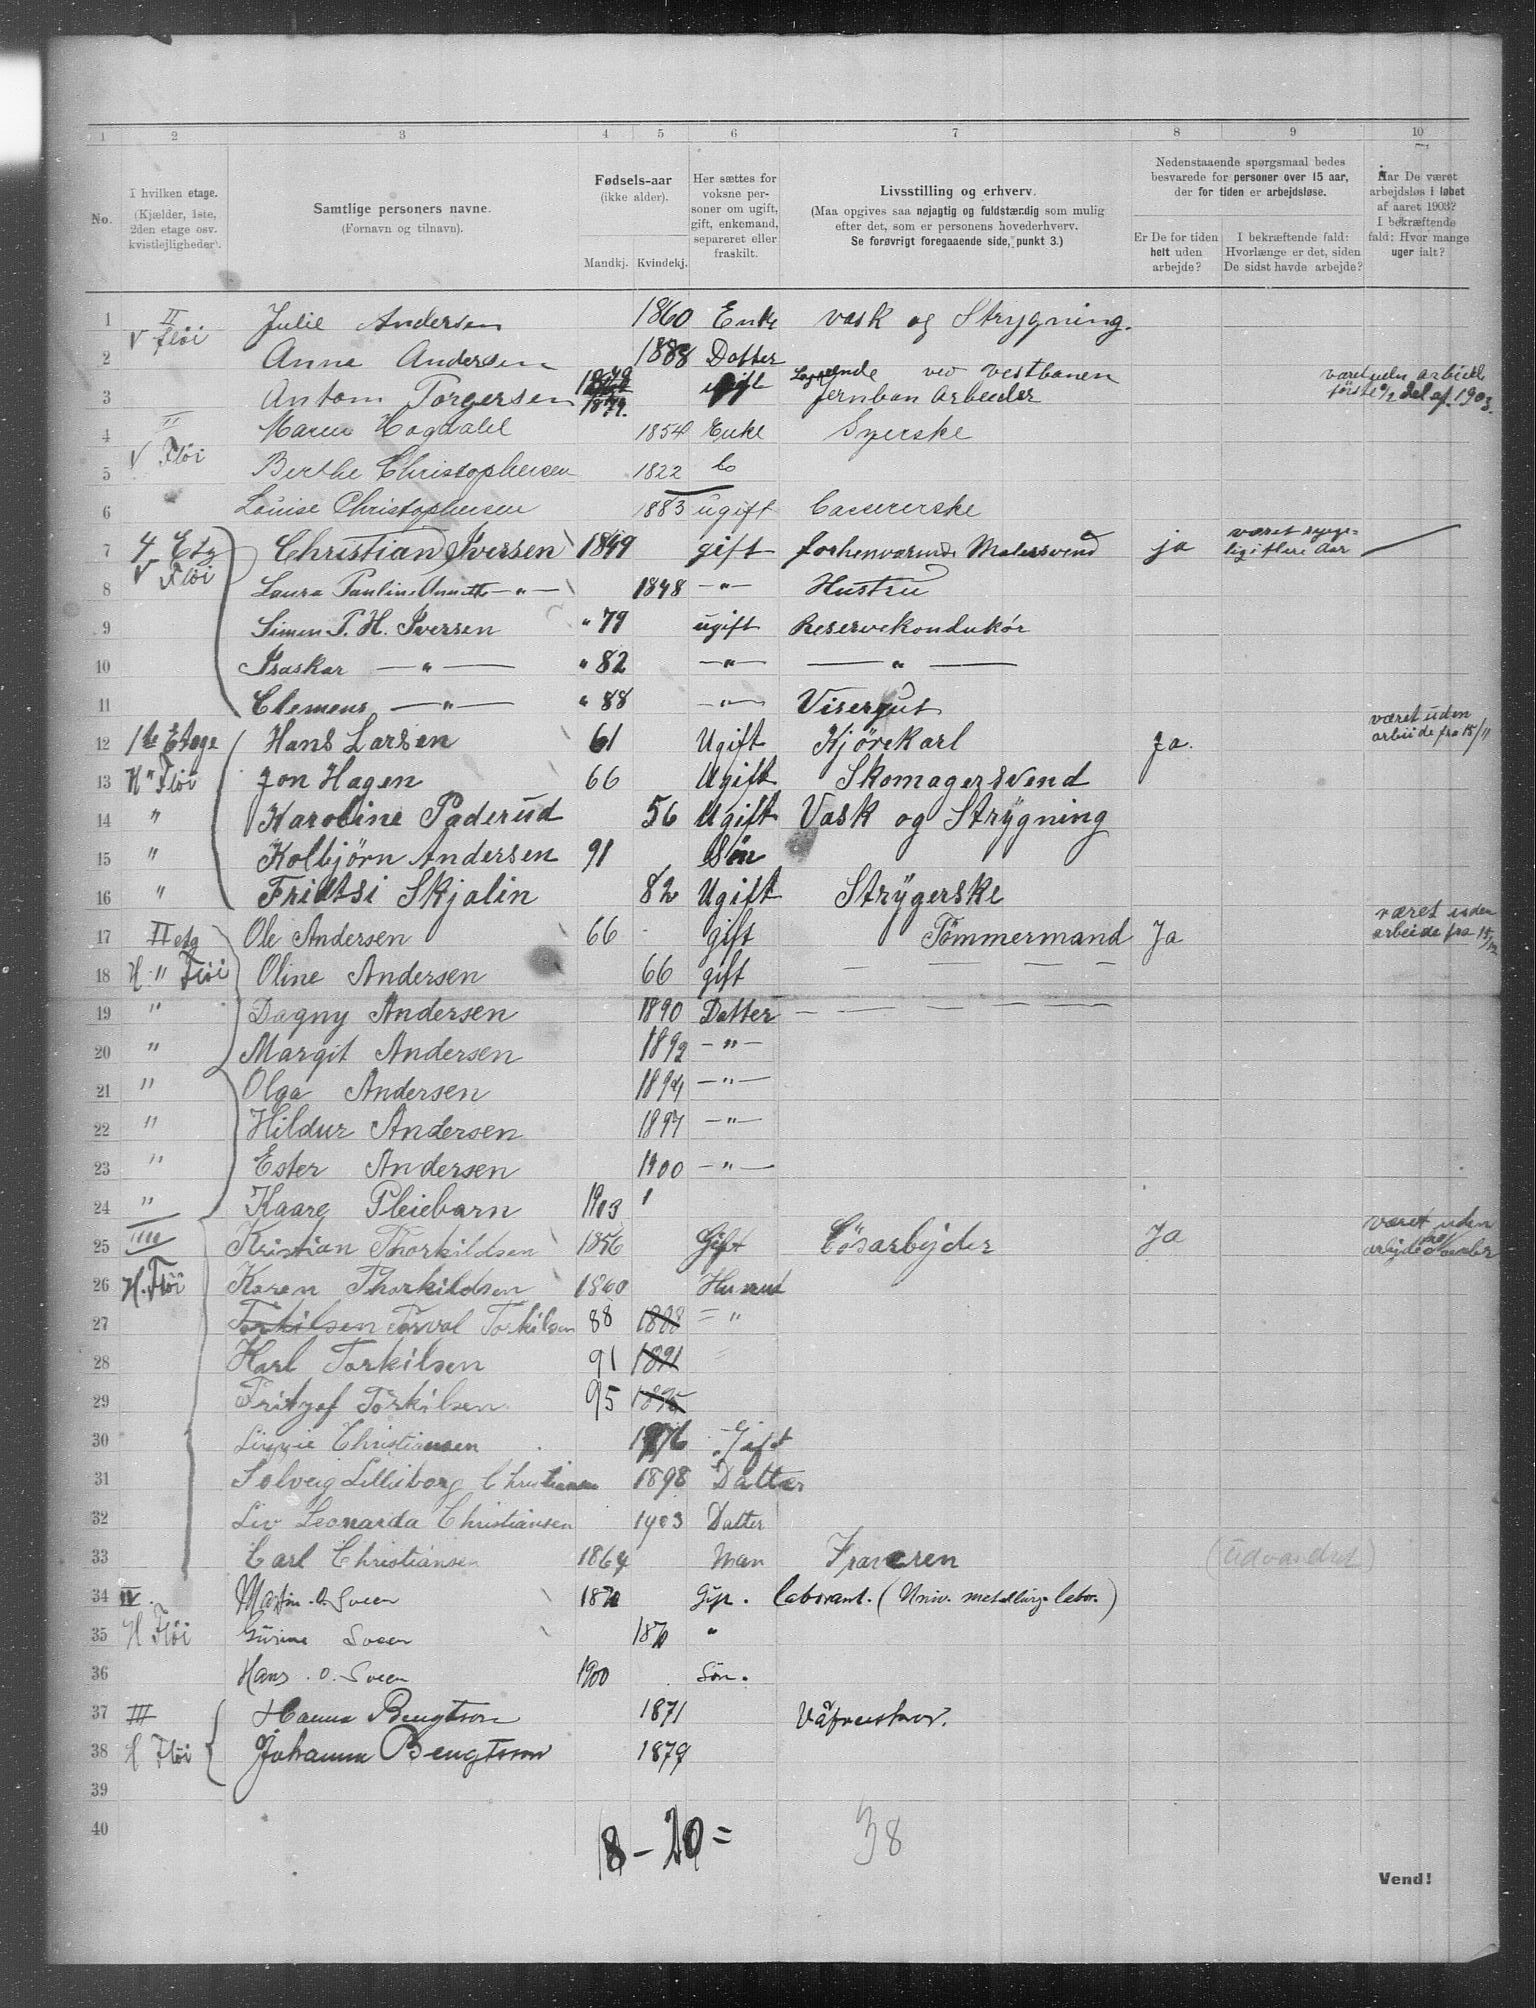 1 2 3 4 5 6 7 8 9 10
No.
I hvilken etage.
(Kjælder, 1ste,
2den etage osv.
kvistlejligheder).
Samtlige personers navne.
(Fornavn og tilnavn).
Fødsels-aar
(ikke alder).
Mandkj. Kvindekj.
Her sættes for
voksne per-
soner om ugift,
gift, enkemand,
separeret eller
fraskilt.
Livsstilling og erhverv.
(Maa opgives saa nøjagtig og fuldstændig som mulig
efter det, som er personens hovederhverv.
Se forøvrigt foregaaende side, punkt 3.)
Nedenstaaende spørgsmaal bedes
besvarede for personer over 15 aar,
der for tiden er arbejdsløse.
Er De for tiden
helt uden
arbejde?
I bekræftende fald:
Hvorlænge er det, siden
De sidst havde arbejde?
Har De været
arbejdsløs i løbet
af aaret 1903?
I bekræftende
fald: Hvor mange
uger ialt?
1 II Julie Andersen 1860 Enke vask og Strygning.
V fløi
2 Anna Andersen 1888 Datter
3 Antom Torgersen 1879. ugift ved vestbanen
Jernban Arbeider været uden arbeide
første 1/2 del af 1903.
4 II Maren Hogdahl 1854 Enke Syerske
V Fløi
5 Berthe Christophersen 1822 do
6 Louise Christophersen 1883 ugift
7 4 Etg Christian Iversen 1849 gift forhenværende Malersvend ja været syge-
ligi flere Aar —
V Fløi
8 Laura Pauline Annette —"— 1848 —"— Hustru
9 Simen P. H. Iversen " 79 ugift Reservekondukør
10 Isaskar —"— " 82 —"— —"—
11 Clemens —"— " 88 —"— Visergut
12 1te Etage Hans Larsen 61 Ugift Kjørekarl Ja. været uden
arbeide fra 15/11
13 H " Fløi Jon Hagen 66 Ugift Skomagersvend
14 " Karoline Paderud 56 Ugift Vask og Strygning
15 " Kolbjörn Andersen 91 Søn
16 " Fridtsi Skjolin 82 Ugift Strÿgerske
17 II etg Ole Andersen 66 gift Tömmermand Ja været uden
arbeide fra 15/12
18 H " Fløi Oline Andersen 66 gift — — — —
19 " Dagny Andersen 1890 Datter — — — —
20 " Margit Andersen 1892 —"—
21 " Olga Andersen 1894 —"—
22 " Hildur Andersen 1897 —"—
23 " Ester Andersen 1900 —"—
24 " Kaare Pleiebarn 1903 1
25 IIII Kristian Thorkildsen 1856 Gift Lösarbejder Ja været uden
arbejde
26 H. Fløi Karen Thorkildsen 1860 Hustrut
27 Torkilsen Torval Torkilsen 88 1888 = "
28 Karl Torkilsen 91 1891
29 Fritjof Torkilsen 95 1895
30 Christiansen 1876 Gift
31 Solveig Lilleborg Christiansen 1898 Datter
32 Liv Leonarda Christiansen 1903 Datter
33 Carl Christiansen 1864 Man Fraveren (udvandret)
34 IV. Martin O. Sveen 1870 Gift. Laborant. (Univ. metallurg. labor.)
35 H Fløi Gurine Sveen 1870 "
36 Hans O. Sveen 1900 Søn.
37 III Hanna Bengtson 1871
38 H Fløi Johanna Bengtsson 1879
39
40
18 — 20 = 38
Vend!